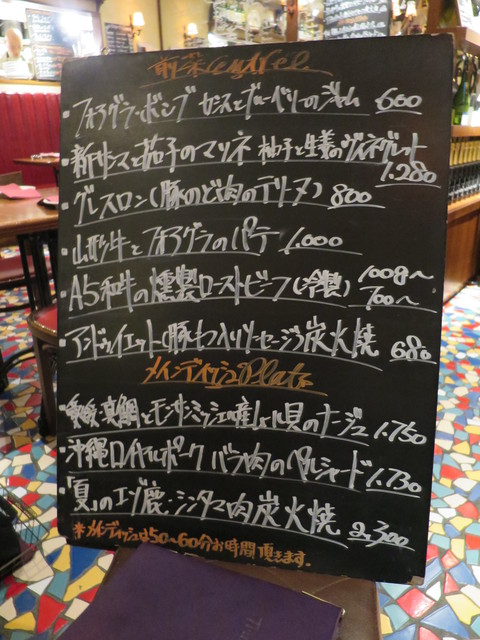 前菜 entrée
・フォアグラ・ボンブ カシスとブルーベリーのジャム 600
・新サンマと茄子のマリネ 柚子と生姜のヴィネグレット 1.280
・グレスロン(豚のど肉のテリーヌ) 800
・山形牛とフォアグラのパテ 1.000
・A5和牛の燻製ローストビーフ(冷製) 100g〜 700〜
・アンドゥイエット(豚モツ入りソーセージ)炭火焼 680
メインディッシュ Plats
・愛媛・真鯛とモンサンミッシェル産ムール貝のナージュ 1.750
・沖縄ロイヤルポーク バラ肉のペルシャード 1.730
・「夏」のエゾ鹿・シンタマ肉炭火焼 2.300
※メインディッシュは50〜60分お時間頂きます。